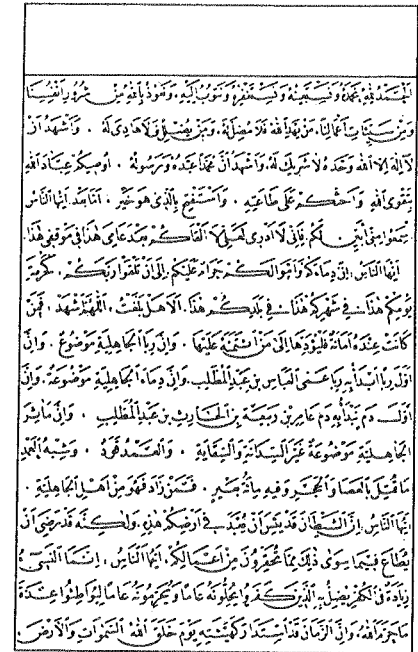 الحَمْدُ لِلّهِ نَحْمَدُهُ وَنَسْتَعِينُهُ وَنَسْتَغْفِرُهُ وَنَتُوبُ إِلَيْهِ، وَنَعُوذُ بِاللّهِ مِنْ شُرُورِ أَنْفُسِنَا
وَمِنْ سَيِّئَاتِ أَعْمَالِنَا. مَنْ يَهْدِ اللّهُ فَلَا مُضِلَّ لَهُ، وَمَنْ يُضْلِلْ فَلَا هَادِيَ لَهُ. وَأَشْهَدُ أَنْ
لَا إِلهَ إِلَّا اللّهُ وَحْدَهُ لَا شَرِيكَ لَهُ، وَأَشْهَدُ أَنَّ مُحَمَّدًا عَبْدُهُ وَرَسُولُهُ. أُوصِيكُمْ عِبَادَ اللّهِ
بِتَقْوَى اللّهِ وَأَحُثُّكُمْ عَلَى طَاعَتِهِ. وَأَسْتَفْتِحُ بِالَّذِي هُوَ خَيْرٌ، أَمَّا بَعْدُ أَيُّهَا النَّاسُ
اسْمَعُوا مِنِّي أُبَيِّنْ لَكُمْ فَإِنِّي لَا أَدْرِي لَعَلِّي لَا أَلْقَاكُمْ بَعْدَ عَامِي هذَا فِي مَوْقِفِي هذَا.
أَيُّهَا النَّاسُ، إِنَّ دِمَاءَكُمْ وَأَمْوَالَكُمْ حَرَامٌ عَلَيْكُمْ إِلَى أَنْ تَلْقَوْا رَبَّكُمْ، كَحُرْمَةِ
يَوْمِكُمْ هذَا فِي شَهْرِكُمْ هذَا فِي بَلَدِكُمْ هذَا، أَلَا هَلْ بَلَّغْتُ، اللّهُمَّ اشْهَدْ، فَمَنْ
كَانَتْ عِنْدَهُ أَمَانَةٌ فَلْيُؤَدِّهَا إِلَى مَنْ ائْتَمَنَهُ عَلَيْهَا. وَإِنَّ رِبَا الجَاهِلِيَّةِ مَوْضُوعٌ. وَإِنَّ
أَوَّلَ رِبًا أَبْدَأُ بِهِ رِبَا عَمِّي العَبَّاسِ بنِ عَبْدِ المُطَّلِبِ وَإِنَّ دِمَاءَ الجَاهِلِيَّةِ مَوْضُوعَةٌ، وَإِنَّ
أَوَّلَ دَمٍ نَبْدَأُ بِهِ دَمُ عَامِرِ بنِ رَبِيعَةَ بنِ الحَارِثِ بنِ عَبْدِ المُطَّلِبِ. وَإِنَّ مَآثِرَ
الجَاهِلِيَّةِ مَوْضُوعَةٌ غَيْرَ السِّدَانَةِ وَالسِّقَايَةِ. وَالعَمْدُ قَوَدٌ. وَشِبْهُ العَمْدِ
مَا قُتِلَ بِالعَصَا وَالحَجَرِ وَفِيهِ مِائَةُ بَعِيرٍ. فَمَنْ زَادَ فَهُوَ مِنْ أَهْلِ الجَاهِلِيَّةِ.
أَيُّهَا النَّاسُ: إِنَّ الشَّيْطَانَ قَدْ يَئِسَ أَنْ يُعْبَدَ فِي أَرْضِكُمْ هذِهِ، وَلكِنَّهُ قَدْ رَضِيَ أَنْ
يُطَاعَ فِيمَا سِوَى ذلِكَ مِمَّا تَحْقِرُونَ مِنْ أَعْمَالِكُمْ. أَيُّهَا النَّاسُ، إِنَّمَا النَّسِيءُ
زِيَادَةٌ فِي الكُفْرِ يُضَلُّ بِهِ الَّذِينَ كَفَرُوا يُحِلُّونَهُ عَامًا وَيُحَرِّمُونَهُ عَامًا لِيُوَاطِئُوا عِدَّةَ
مَا حَرَّمَ اللّهُ، وَإِنَّ الزَّمَانَ قَدْ اسْتَدَارَ كَهَيْئَتِهِ يَوْمَ خَلَقَ اللّهُ السَّموَاتِ وَالأَرْضَ.